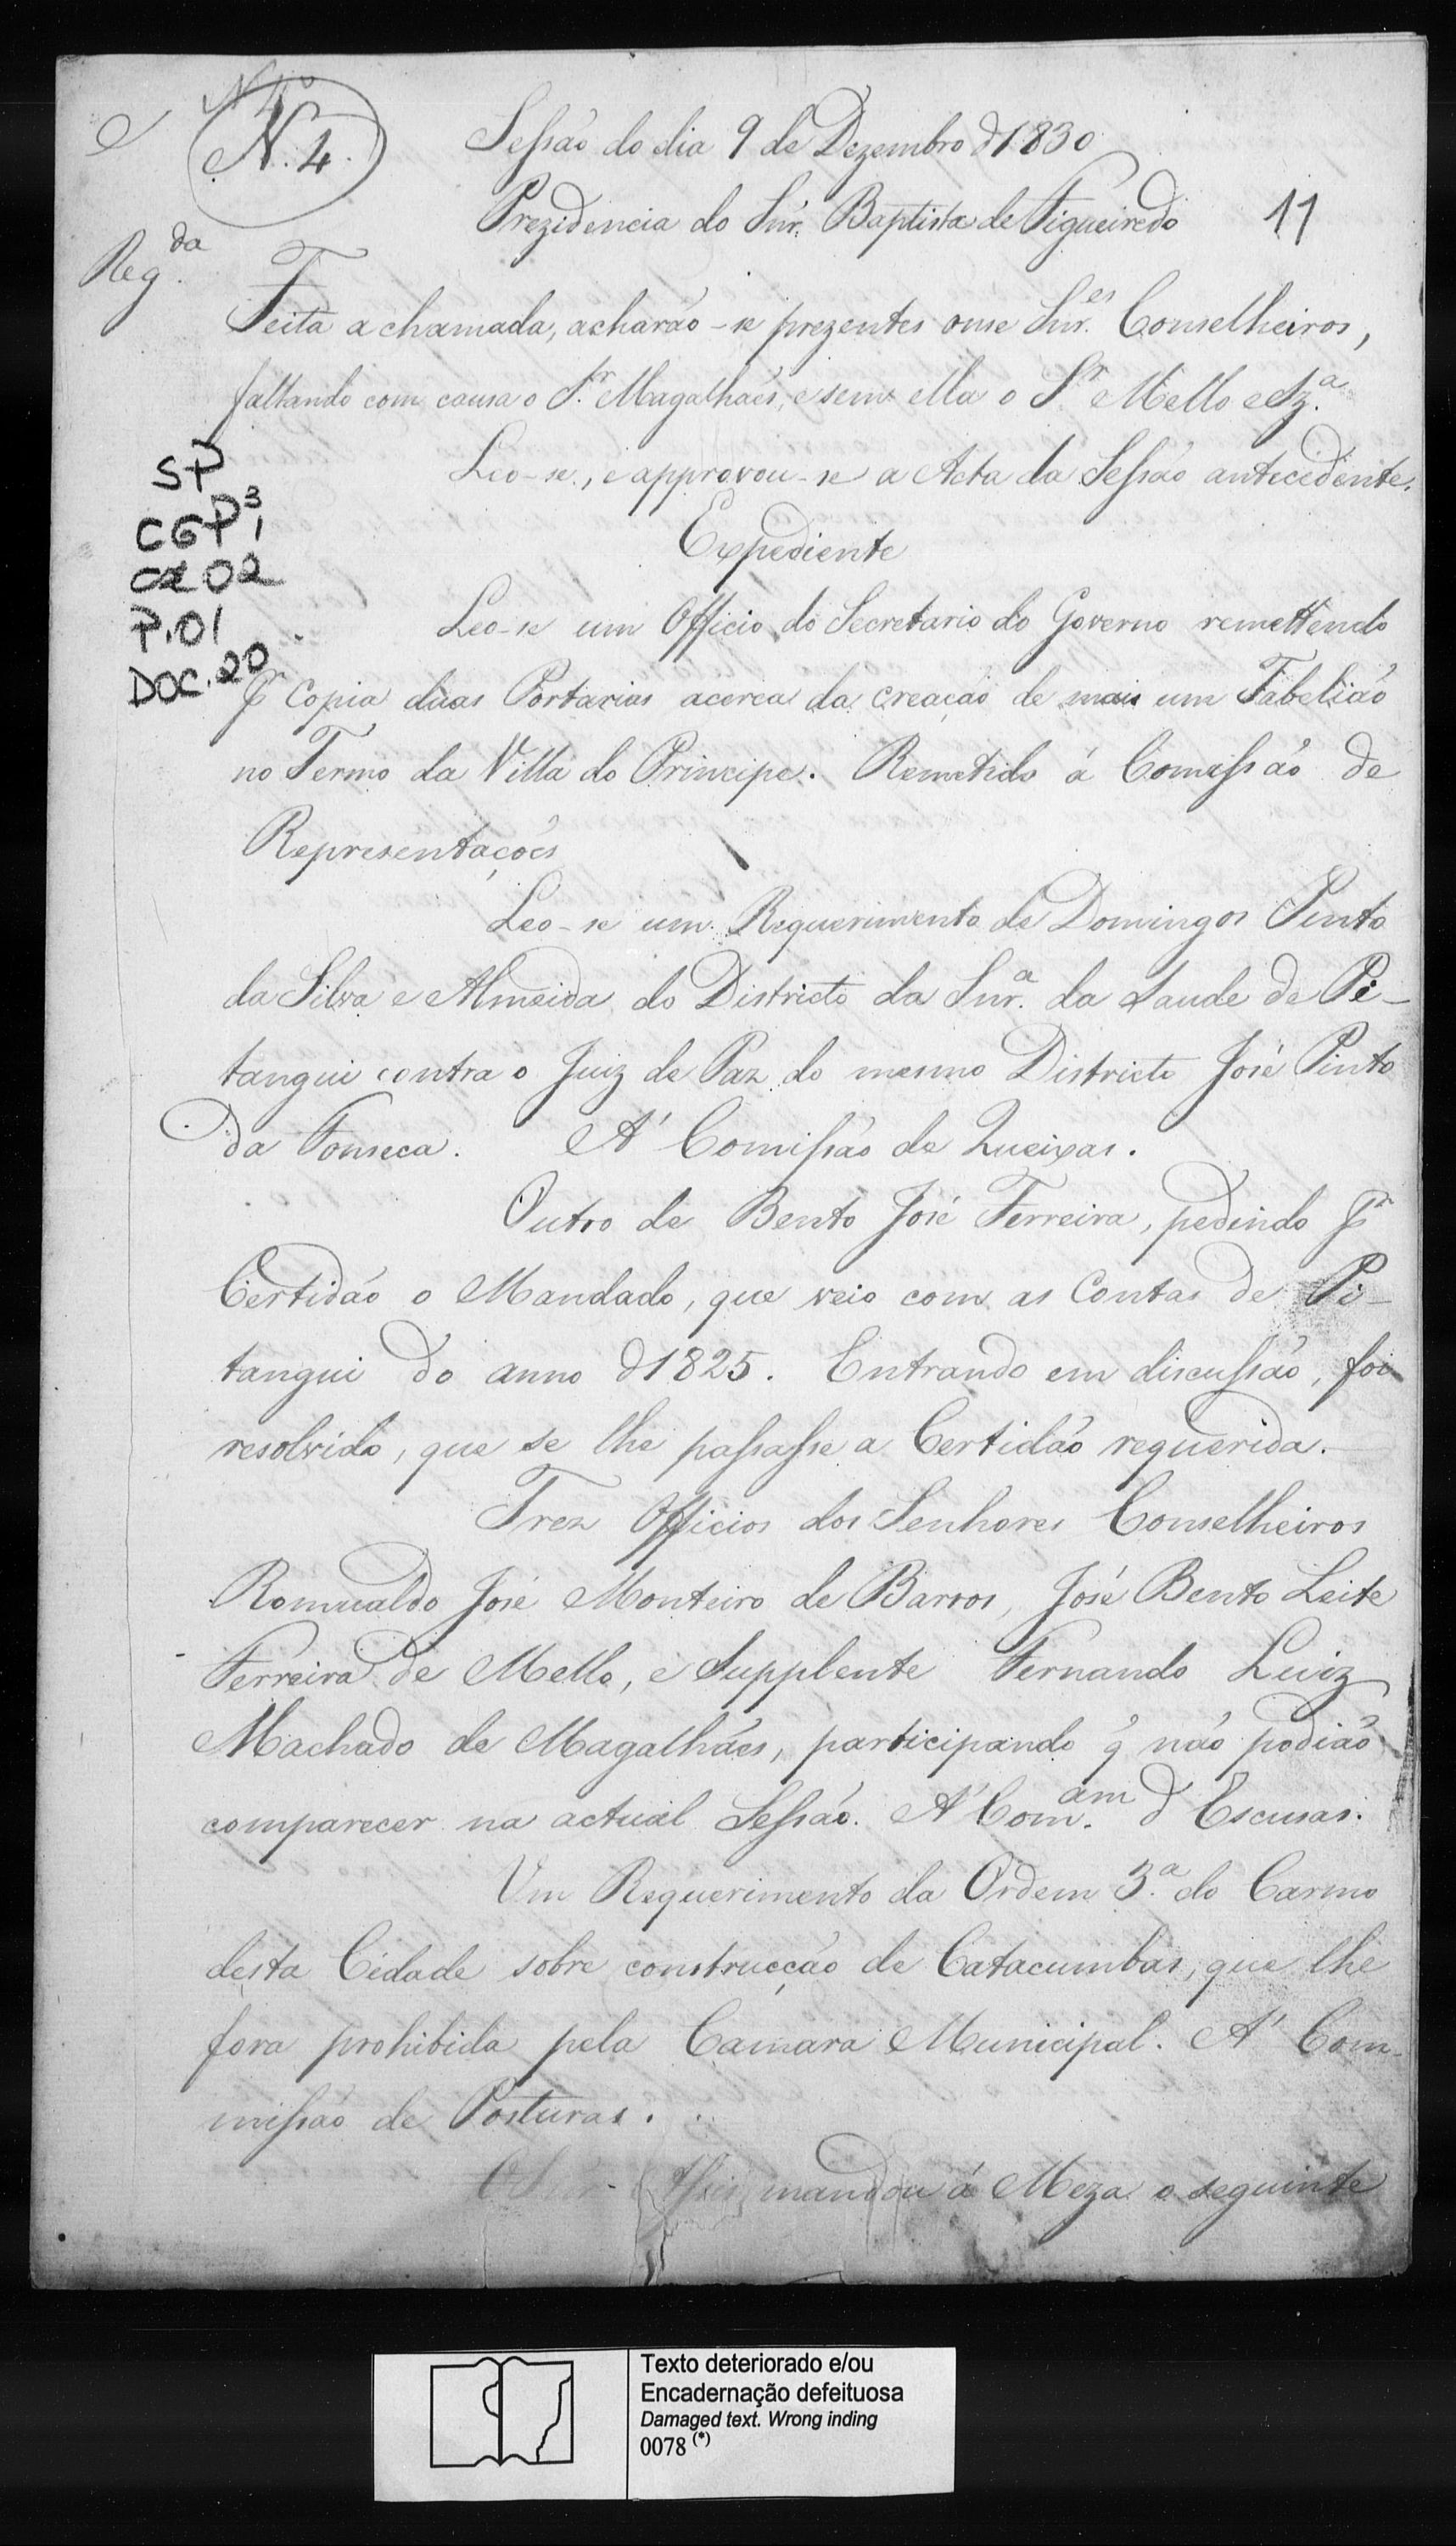 N. 4.
Sessão do dia 9 de Dezembro d 1830
Prezidencia do Snr. Baptista de Figueiredo
11
Reg.da
Feita a chamada, acharão-se prezentes onse Snr.es Conselheiros,
faltando com causa o Sr. Magalhães, e sem ella o Sr. Mello e Sz.a
Leo-se, e approvou-se a Acta da Sessão antecedente.
SP
CGP³,
CX 02
P.01
DOC. 20
Expediente
Leo-se um Officio do Secretario do Governo remettendo
pr copia duas Portarias acerca da creação de mais um Tabelião
no Termo da Villa do Principe. Remetido á Comissão de
Representações
Leo-se um Requerimento de Domingos Pinto
da Silva e Almeida do Districto da Snr.a da Saude de Pi-
tangui contra o Juiz de Paz do mesmo Districto José Pinto
da Fonseca. A' Comissão de Queixas.
Outro de Bento José Ferreira, pedindo pr
Certidão o Mandado, que veio com as Contas de Pi-
tangui do anno d 1825. Entrando em discussão, foi
resolvido, que se lhe passasse a Certidão requerida.
Trez Officios dos Senhores Conselheiros
Romualdo José Monteiro de Barros, José Bento Leite
Ferreira de Mello, e Supplente Fernando Luiz
Machado de Magalhães, participando q̃ não podião
comparecer na actual Sessão. A' Com.am d Escusas.
Um Requerimento da Ordem 3.a do Carmo
desta Cidade sobre construcção de Catacumbas, que lhe
fora prohibida pela Camara Municipal. A' Com-
missão de Posturas.
O Snr. mandou á Meza o seguinte
Texto deteriorado e/ou
Encadernação defeituosa
Damaged text. Wrong inding
0078 (*)